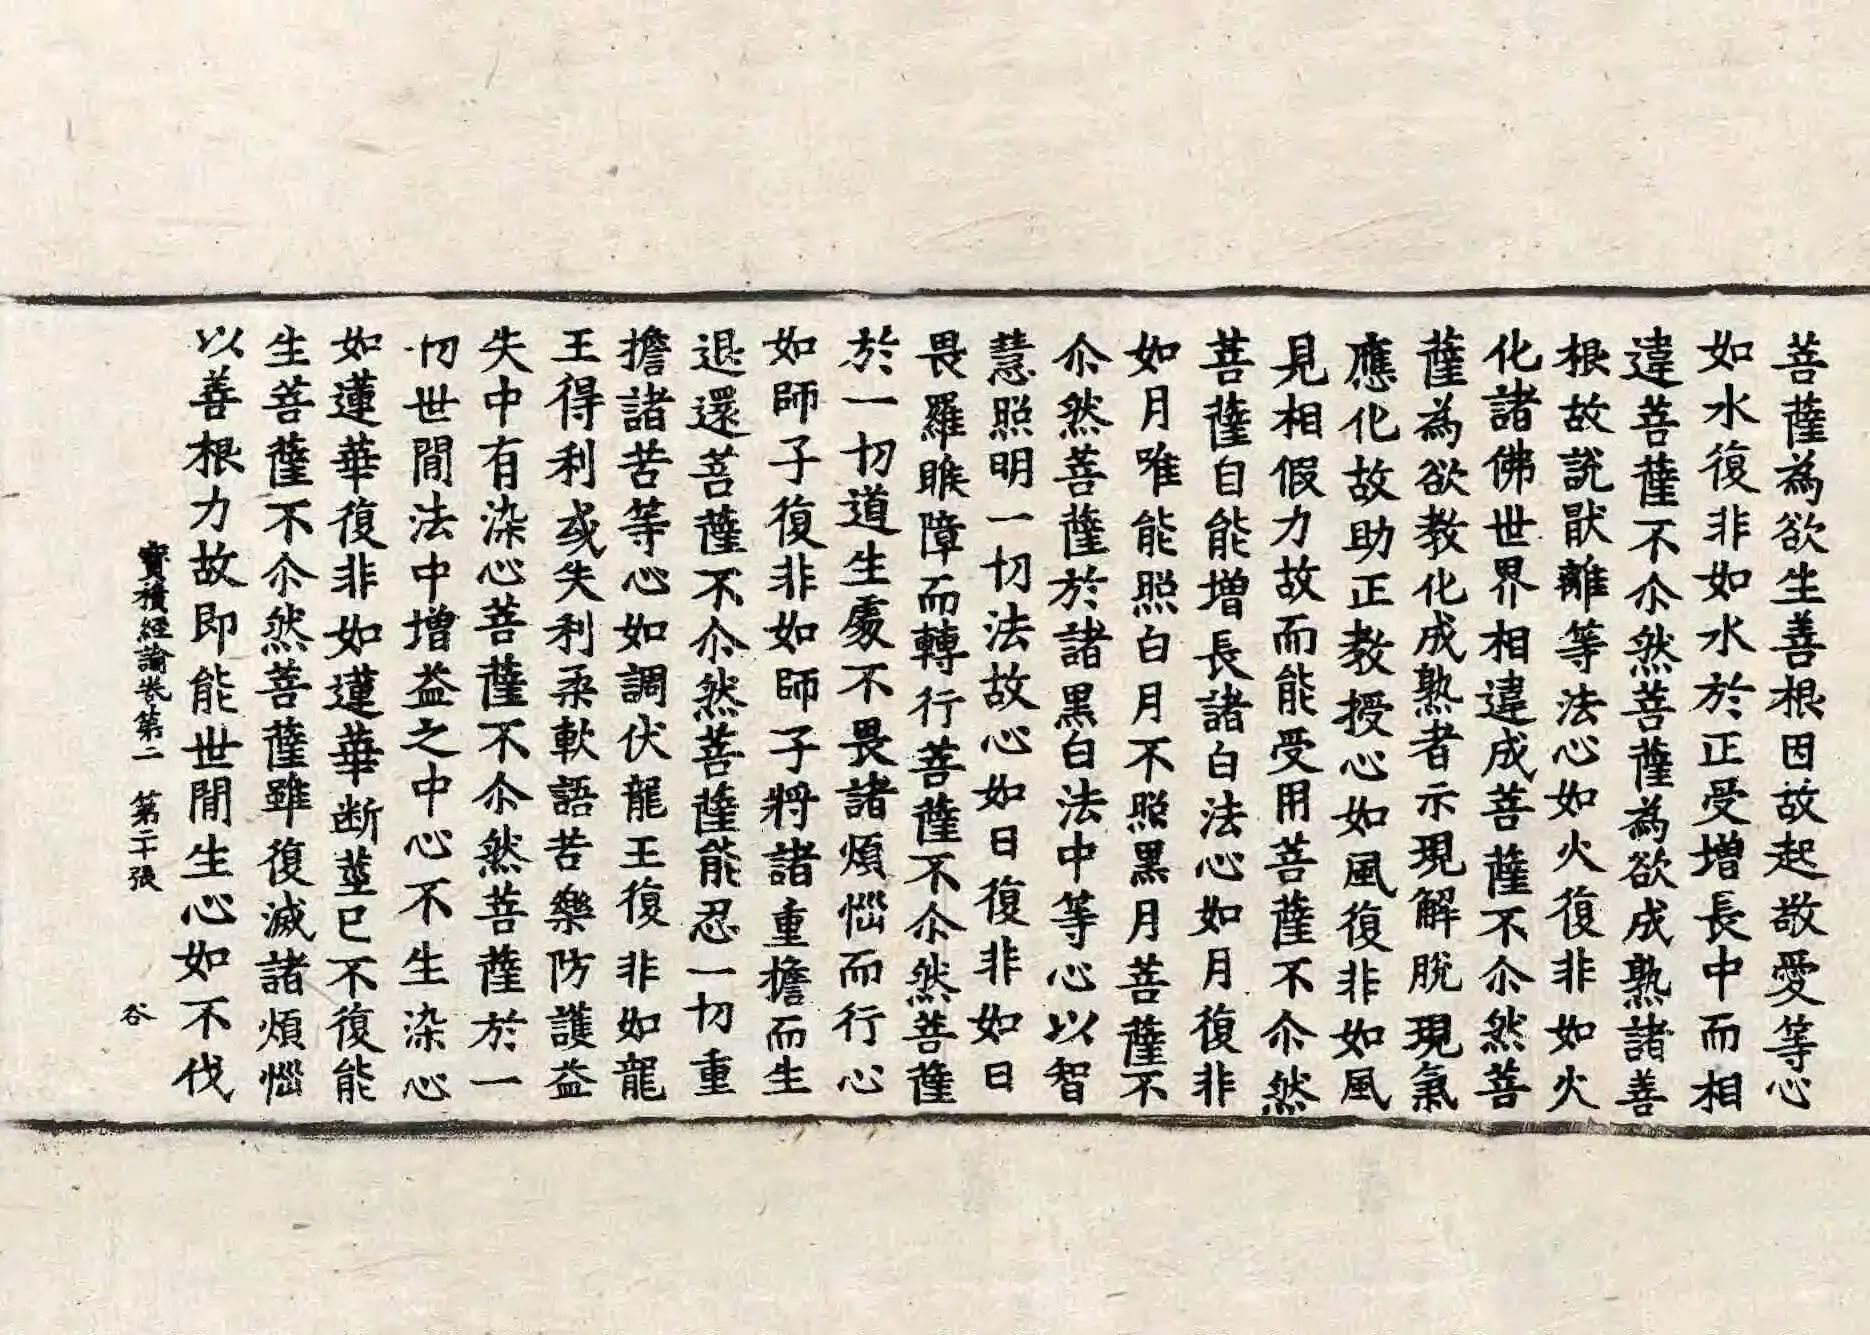 菩薩為欲生善根因故起敬愛等心
如水復非如水於正受增長中而相
違菩薩不尒然菩薩為欲成熟諸善
根故說猒離等法心如火復非如火
化諸佛世界相違成菩薩不尒然菩
薩為欲教化成熟者示現解脫現氣
應化故助正教授心如風復非如風
見相假力故而能受用菩薩不尒然
菩薩自能增長諸白法心如月復非
如月唯能照白月不照黑月菩薩不
尒然菩薩於諸黑白法中等心以智
慧照明一切法故心如日復非如日
畏羅睺障而轉行菩薩不尒然菩薩
於一切道生處不畏諸煩惱而行心
如師子復非如師子將諸重擔而生
退還菩薩不尒然菩薩能忍一切重
擔諸苦等心如調伏龍王復非如龍
王得利或失利柔軟語苦樂防護益
失中有染心菩薩不尒然菩薩於一
切世間法中增益之中心不生染心
如蓮華復非如蓮華断莖已不復能
生菩薩不尒然菩薩雖復滅諸煩惱
以善根力故即能世間生心如不伐
寶積經論卷第二 第二十張 谷